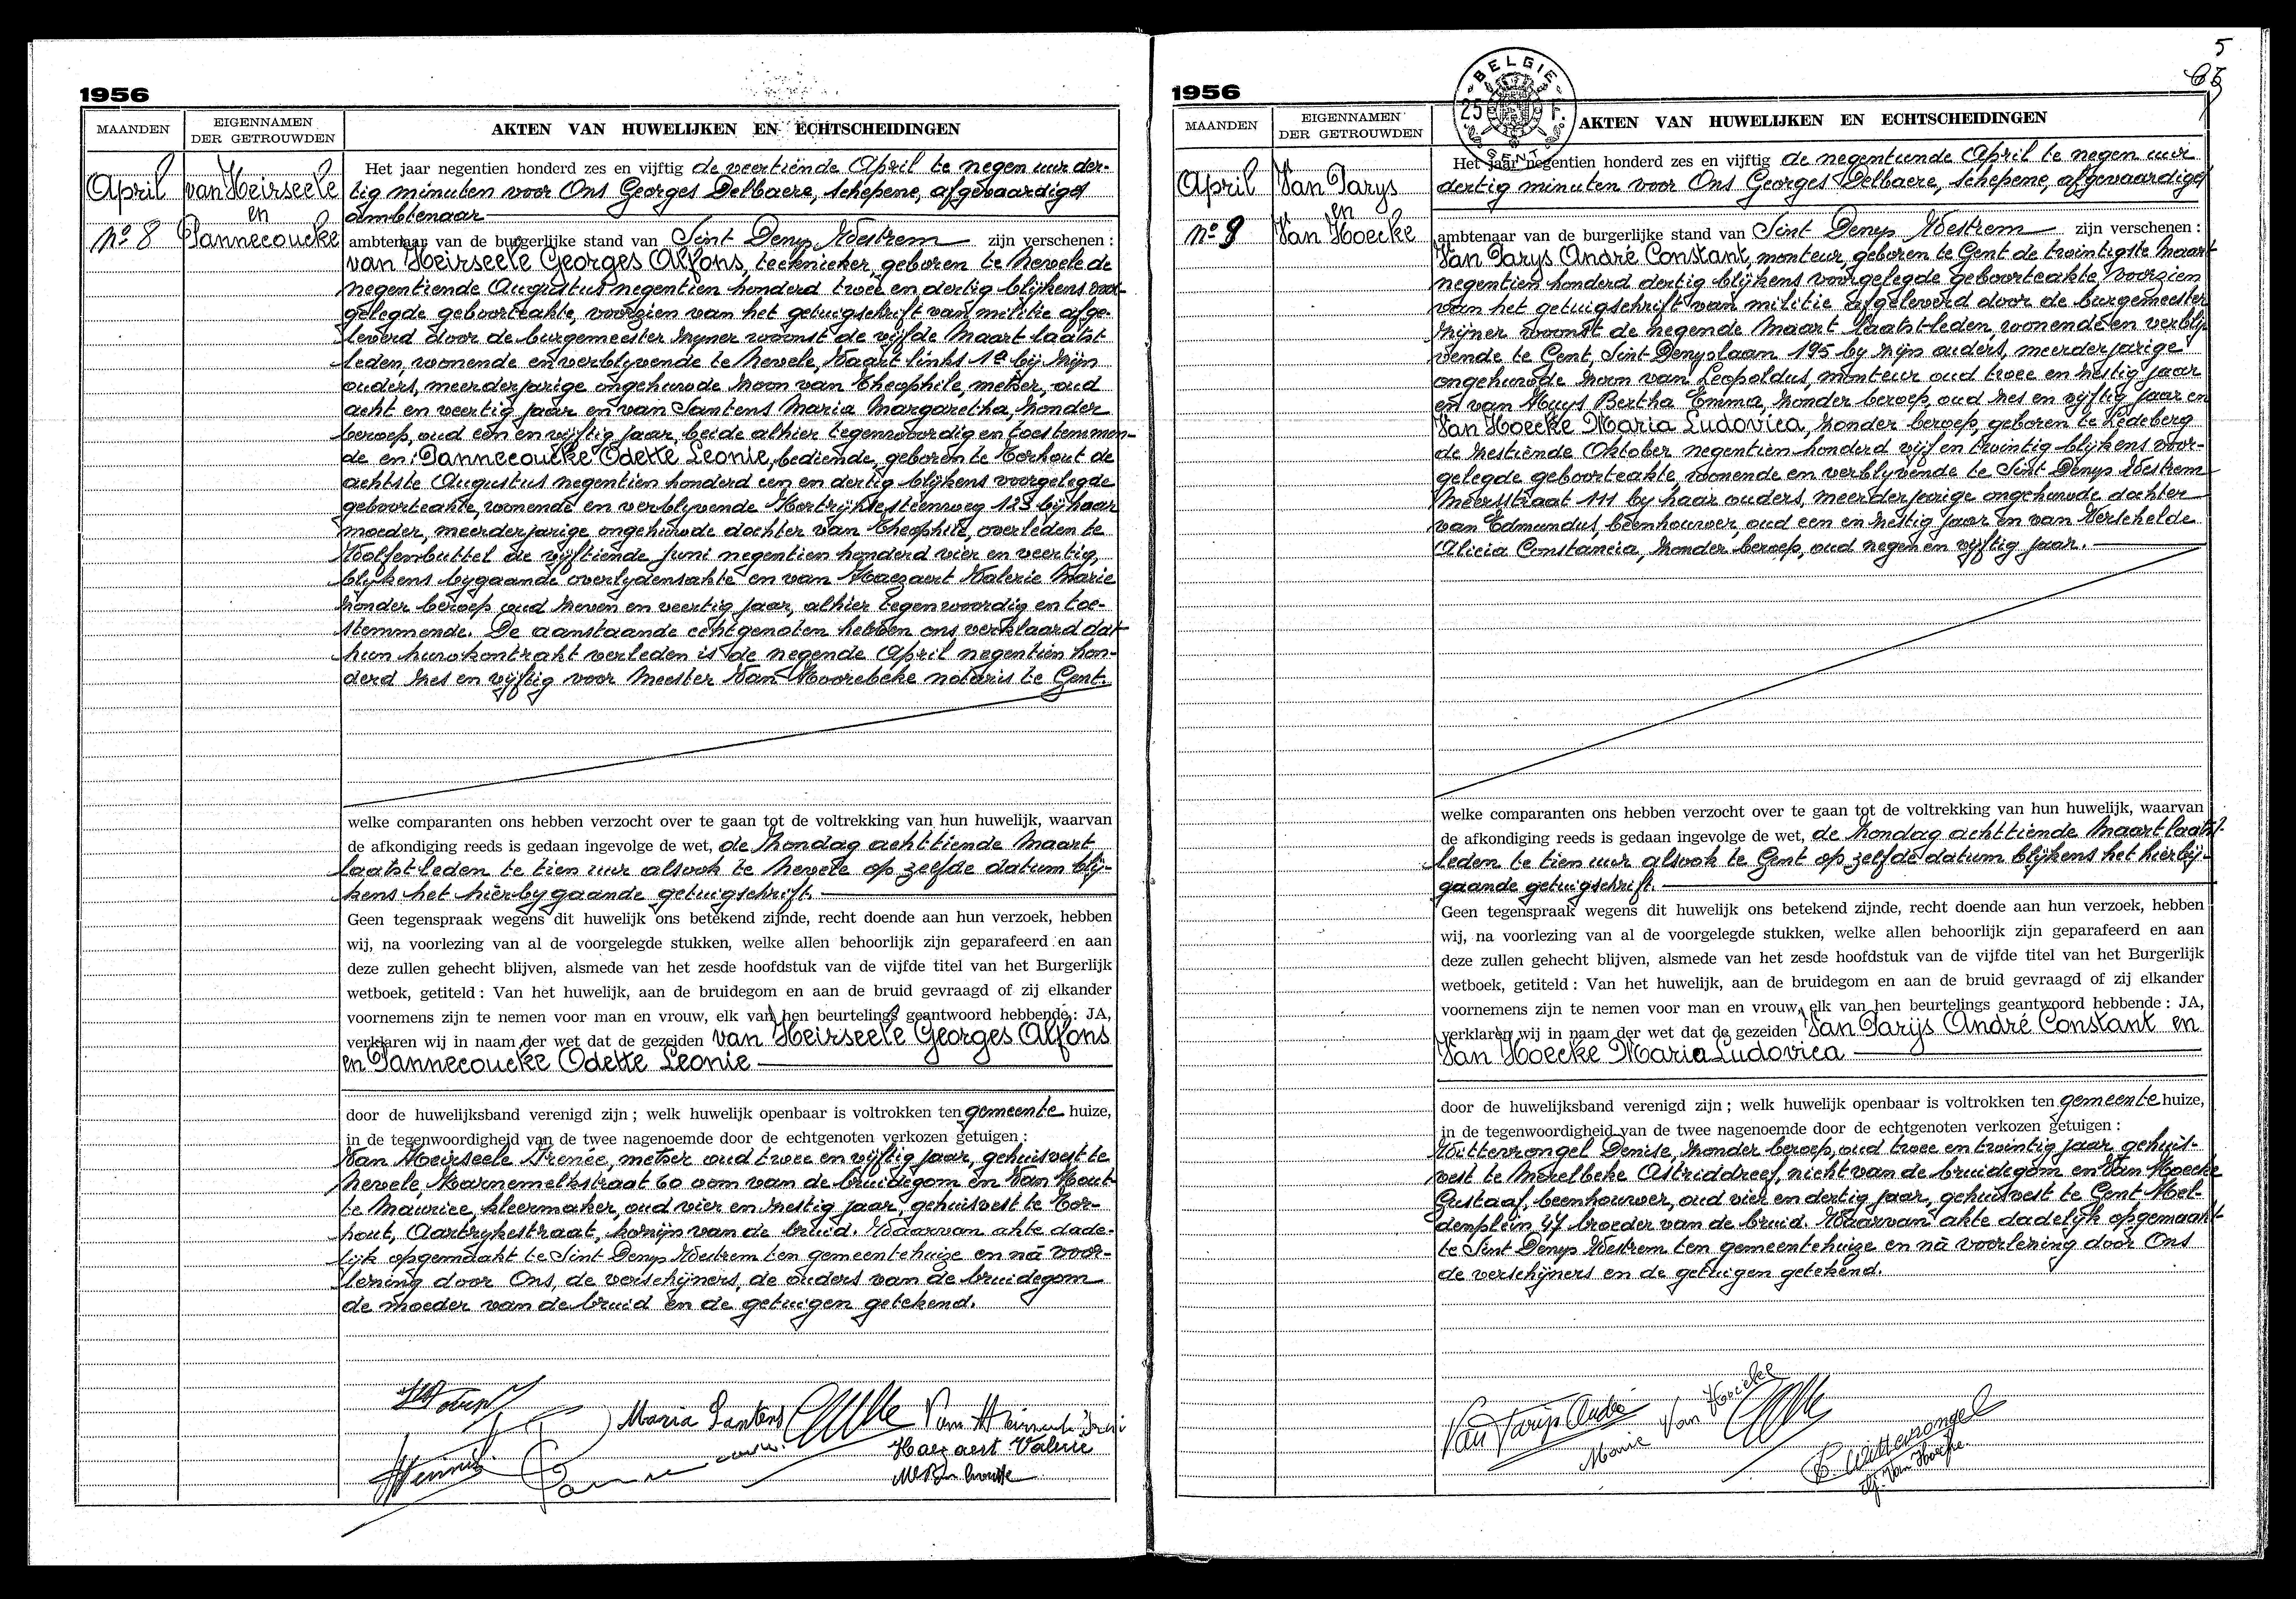 1956
MAANDEN
EIGENNAMEN
DER GETROUWDEN
AKTEN VAN HUWELIJKEN EN ECHTSCHEIDINGEN
April
van Heirseele
en
nº 8
Pannecoucke
Het jaar negentien honderd zes en vijftig de veertiende April te negen uur der-
tig minuten voor Ons Georges Delbaere, schepene, afgevaardigd
ambtenaar
ambtenaar van de burgerlijke stand van Sint Denys Westrem zijn verschenen :
van Heirseele Georges Alfons, teeknieker, geboren te Nevele de
negentiende Augustus negentien honderd twee en dertig blijkens voor-
gelegde geboorteakte, voorzien van het getuigschrift van militie afge-
leverd door de burgemeester zijner woonst de vijfde Maart laatst
leden, wonende en verblyvende te Nevele, Vaart links 1ª bij zijn
ouders, meerderjarige ongehuwde zoon van Theophile, metser, oud
acht en veertig jaar en van Santens Maria Margaretha, zonder
beroep, oud een en vijftig jaar, beide alhier tegenwoordig en toestemmen-
de en: Pannecoucke Odette Leonie, bediende, geboren te Torhout de
achtste Augustus negentien honderd een en dertig blijkens voorgelegde
geboorteakte, wonende en verblyvende Kortrijksesteenweg 123 bij haar
moeder, meerderjarige ongehuwde dochter van Theophile, overleden te
Wolfenbuttel de vijftiende juni negentien honderd vier en veertig,
blijkens bygaande overlydensakte en van Haezaert Valerie Marie
zonder beroep oud zeven en veertig jaar, alhier tegenwoordig en toe-
stemmende. De aanstaande echtgenoten hebben ons verklaard dat
hun huwkontrakt verleden is de negende April negentien hon-
derd zes en vijftig voor Meester Van Hoorebeke notaris te Gent.
welke comparanten ons hebben verzocht over te gaan tot de voltrekking van hun huwelijk, waarvan
de afkondiging reeds is gedaan ingevolge de wet, de Zondag achttiende Maart
laatstleden te tien uur alsook te Nevele op zelfde datum blij-
kens het hierbygaande getuigschrift.
Geen tegenspraak wegens dit huwelijk ons betekend zijnde, recht doende aan hun verzoek, hebben
wij, na voorlezing van al de voorgelegde stukken, welke allen behoorlijk zijn geparafeerd en aan
deze zullen gehecht blijven, alsmede van het zesde hoofdstuk van de vijfde titel van het Burgerlijk
wetboek, getiteld : Van het huwelijk, aan de bruidegom en aan de bruid gevraagd of zij elkander
voornemens zijn te nemen voor man en vrouw, elk van hen beurtelings geantwoord hebbende : JA,
verklaren wij in naam der wet dat de gezeiden van Heirseele Georges Alfons
en Pannecoucke Odette Leonie
door de huwelijksband verenigd zijn ; welk huwelijk openbaar is voltrokken ten gemeente huize,
in de tegenwoordigheid van de twee nagenoemde door de echtgenoten verkozen getuigen :
Van Heirseele Irenée, metser oud twee en vijftig jaar, gehuisvest te
Nevele, Karnemelkstraat 60 oom van de bruidegom en Van Hout-
te Maurice, kleermaker, oud vier en zestig jaar, gehuisvest te Tor-
hout, Aartrykestraat, kozijn van de bruid. Waarvan akte dade-
lijk opgemaakt te Sint Denys Westrem ten gemeentehuize en nà voor-
lezing door Ons, de verschijners, de ouders van de bruidegom
de moeder van de bruid en de getuigen getekend.
Maria Santens
Van Heirseele Irené
Haezaert Valerie
1956
5
MAANDEN
EIGENNAMEN
DER GETROUWDEN
BELGIE
25 F.
GENT
AKTEN VAN HUWELIJKEN EN ECHTSCHEIDINGEN
April
Van Parys
en
nº 9
Van Hoecke
Het jaar negentien honderd zes en vijftig de negentiende April te negen uur
dertig minuten voor Ons Georges Delbaere, schepene, afgevaardigd
ambtenaar van de burgerlijke stand van Sint Denys Westrem zijn verschenen :
Van Parys André Constant, monteur, geboren te Gent de twintigste Maart
negentien honderd dertig blijkens voorgelegde geboorteakte, voorzien
van het getuigschrift van militie afgeleverd door de burgemeester
zijner woonst de negende Maart laatst-leden, wonende en verblij-
vende te Gent, Sint Denyslaan 195 by zijn ouders, meerderjarige
ongehuwde zoon van Leopoldus, monteur oud twee en zestig jaar
en van Huys Bertha Emma, zonder beroep, oud zes en vijftig jaar en
Van Hoecke Maria Ludovica, zonder beroep, geboren te Ledeberg
de zestiende Oktober negentien honderd vijf en twintig blijkens voor-
gelegde geboorteakte, wonende en verblyvende te Sint Denys Westrem
Meersstraat 111 by haar ouders, meerderjarige ongehuwde dochter
van Edmundus, beenhouwer, oud een en zestig jaar en van Verschelde
Alicia Constancia, zonder beroep, oud negen en vijftig jaar.
welke comparanten ons hebben verzocht over te gaan tot de voltrekking van hun huwelijk, waarvan
de afkondiging reeds is gedaan ingevolge de wet, de Zondag achttiende Maart laatst-
leden te tien uur alsook te Gent op zelfde datum blijkens het hierbij-
gaande getuigschrift.
Geen tegenspraak wegens dit huwelijk ons betekend zijnde, recht doende aan hun verzoek, hebben
wij, na voorlezing van al de voorgelegde stukken, welke allen behoorlijk zijn geparafeerd en aan
deze zullen gehecht blijven, alsmede van het zesde hoofdstuk van de vijfde titel van het Burgerlijk
wetboek, getiteld : Van het huwelijk, aan de bruidegom en aan de bruid gevraagd of zij elkander
voornemens zijn te nemen voor man en vrouw, elk van hen beurtelings geantwoord hebbende : JA,
verklaren wij in naam der wet dat de gezeiden Van Parijs André Constant en
Van Hoecke Maria Ludovica
door de huwelijksband verenigd zijn ; welk huwelijk openbaar is voltrokken ten gemeente huize,
in de tegenwoordigheid van de twee nagenoemde door de echtgenoten verkozen getuigen :
Wittevrongel Denise, zonder beroep, oud twee en twintig jaar, gehuis-
vest te Merelbeke Astriddreef, nicht van de bruidegom en Van Hoecke
Gustaaf, beenhouwer, oud vier en dertig jaar, gehuisvest te Gent Hel-
denplein 47 broeder van de bruid. Waarvan akte dadelijk opgemaakt
te Sint Denys Westrem ten gemeentehuize en nà voorlezing door Ons
de verschijners en de getuigen getekend.
Van Parijs André
Marie Van Hoecke
D. Wittevrongel
G. Van Hoecke